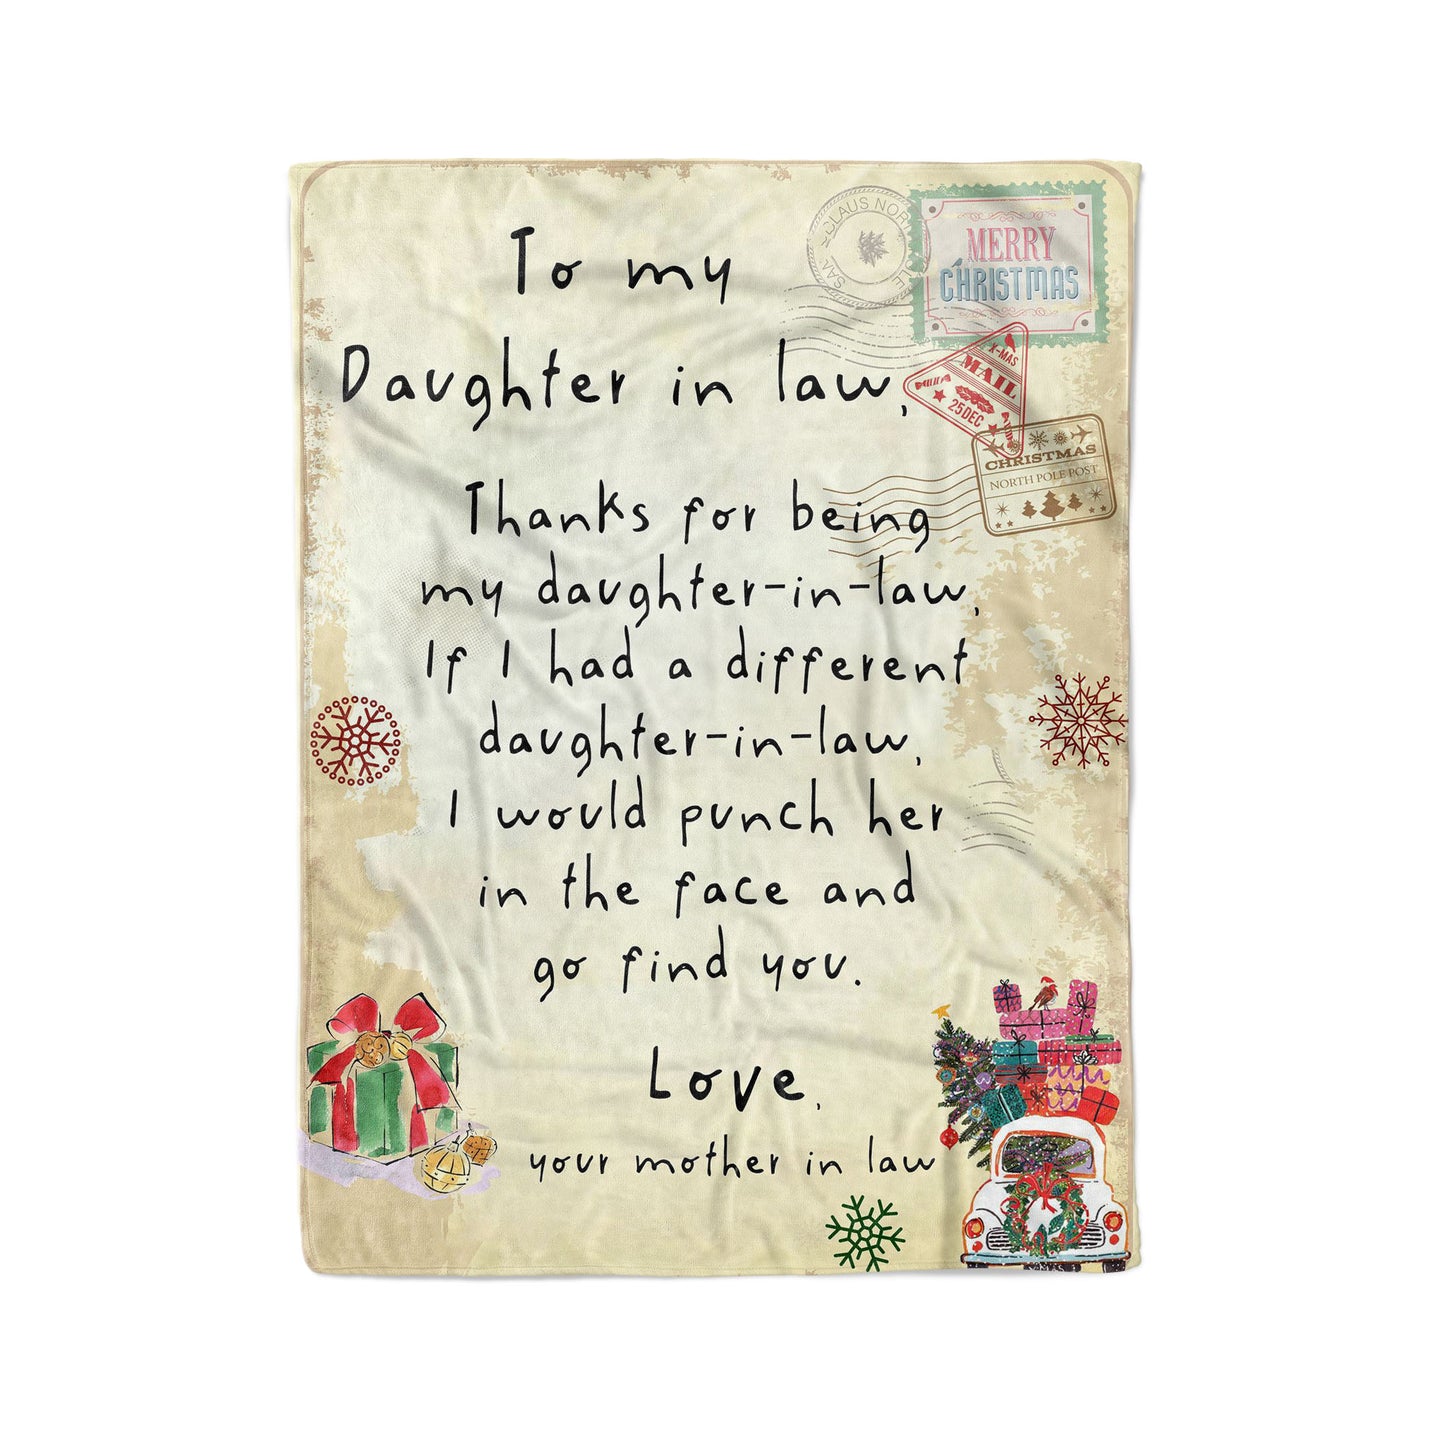 SANTA CLAUS NORTH POLE
MERRY
CHRISTMAS
To my
X-MAS
MAIL
25 DEC
Daughter in law,
CHRISTMAS
NORTH POLE POST
Thanks for being
my daughter-in-law,
If I had a different
daughter-in-law,
I would punch her
in the face and
go find you.
Love,
your mother in law